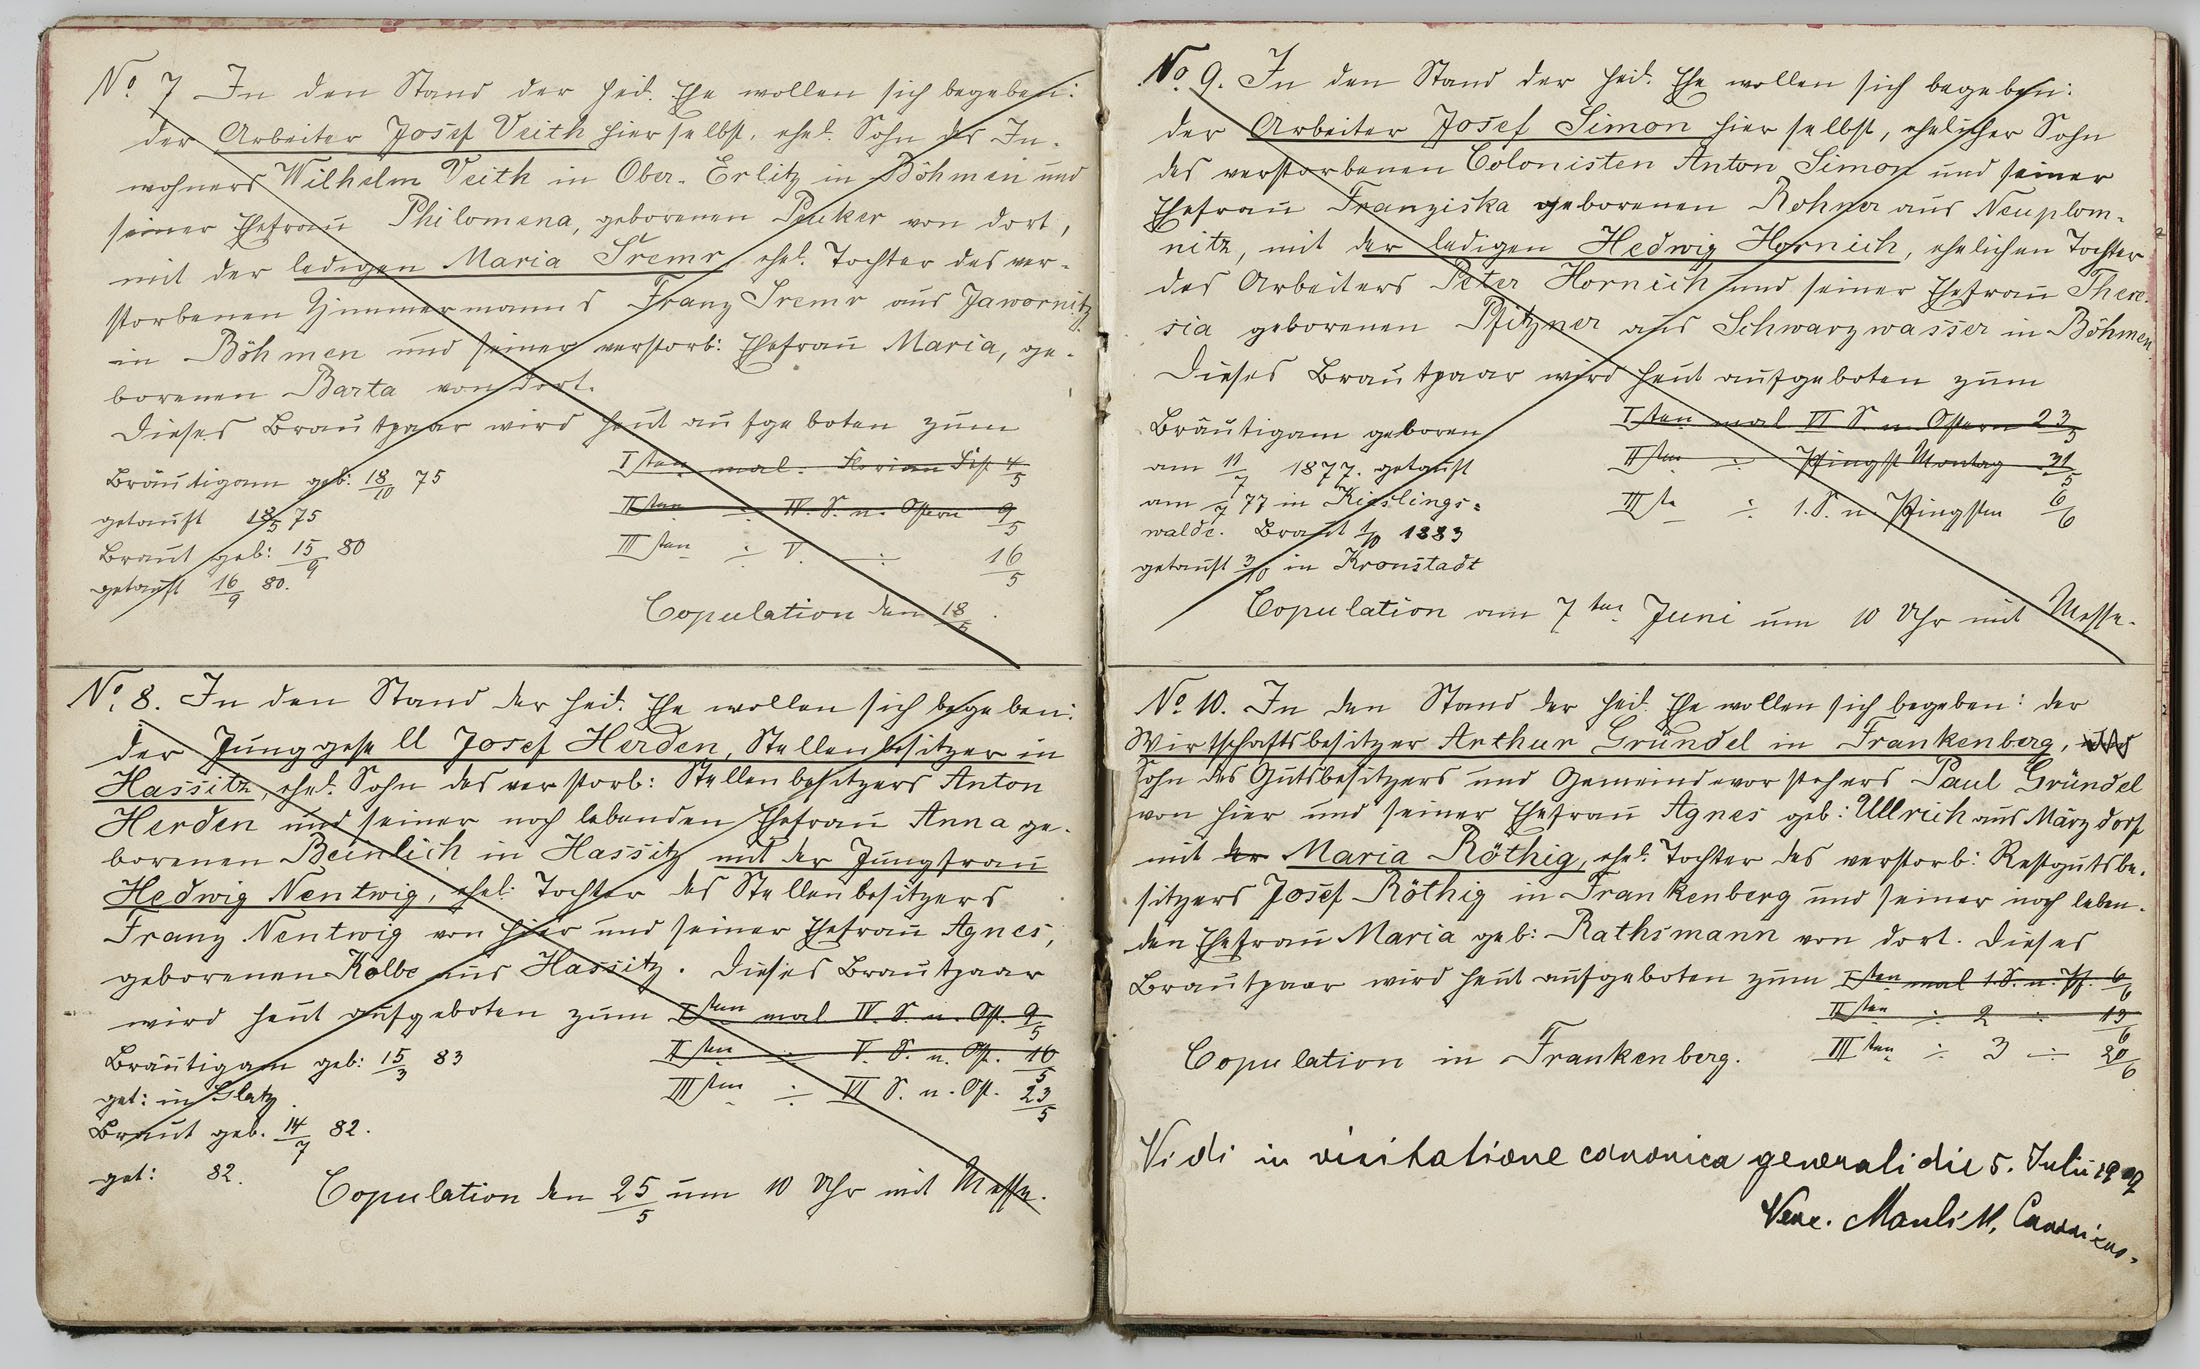 No. 7 In den Stand der heil. Ehe wollen sich begeben:
der Arbeiter Josef Veith hierselbst, ehel. Sohn des In-
wohners Wilhelm Veith in Ober-Erlitz in Böhmen und
seiner Ehefrau Philomena, geborenen Peuker von dort,
mit der ledigen Maria Šremr ehel. Tochter des ver-
storbenen Zimmermanns Franz Šremr aus Jawornitz
in Böhmen und seiner verstorb: Ehefrau Maria, ge-
borenen Barta von dort.
Dieses Brautpaar wird heut aufgeboten zum
Isten mal. Florian Fest 4/5
Bräutigam geb: 18/10 75
IIten ÷ IV. S. n. Ostern 9/5
getauft 18/5 75
IIIten ÷ V. ÷ 16/5
Braut geb: 15/9 80
getauft 16/9 80.
Copulation den 18/5.
No. 8. In den Stand der heil. Ehe wollen sich begeben:
der Junggesell Josef Herden, Stellenbesitzer in
Hassitz, ehel. Sohn des verstorb: Stellenbesitzers Anton
Herden und seiner noch lebenden Ehefrau Anna ge-
borenen Beinlich in Hassitz mit der Jungfrau
Hedwig Nentwig, ehel: Tochter des Stellenbesitzers
Franz Nentwig von hier und seiner Ehefrau Agnes,
geborenen Kolbe aus Hassitz. Dieses Brautpaar
wird heut aufgeboten zum Isten mal IV. S. n. Ost. 9/5
Bräutigam geb: 15/3 83
IIten ÷ V. S. n. Ost. 16/5
get: in Glatz.
IIIten ÷ VI S. n. Ost. 23/5
Braut geb. 14/7 82.
get: 82.
Copulation den 25/5 um 10 Uhr mit Messe.
No. 9. In den Stand der heil. Ehe wollen sich begeben:
der Arbeiter Josef Simon hierselbst, ehelicher Sohn
des verstorbenen Colonisten Anton Simon und seiner
Ehefrau Franziska geborenen Rohner aus Neuplom-
nitz, mit der ledigen Hedwig Hornich, ehelichen Tochter
des Arbeiters Peter Hornich und seiner Ehefrau There-
sia geborenen Pfitzner aus Schwarzwasser in Böhmen.
Dieses Brautpaar wird heut aufgeboten zum
Isten mal VI S. n. Ostern 23/5
Bräutigam geboren
am 11/7 1877. getauft
IIten ÷ Pfingst Montag 31/5
am /7 77 in Kieslings-
IIIte ÷ 1. S. n. Pfingsten 6/6
walde. Braut 1/10 1883
getauft 3/10 in Kronstadt
Copulation am 7ten Juni um 10 Uhr mit Messe.
No. 10. In den Stand der heil. Ehe wollen sich begeben: der
Wirtschaftsbesitzer Arthur Gründel in Frankenberg,
Sohn des Gutsbesitzers und Gemeindevorstehers Paul Gründel
von hier und seiner Ehefrau Agnes geb: Ullrich aus Märzdorf
mit der Maria Röthig, ehel. Tochter des verstorb: Restgutsbe-
sitzers Josef Röthig in Frankenberg und seiner noch leben-
den Ehefrau Maria geb: Rathsmann von dort. Dieses
Brautpaar wird heut aufgeboten zum Isten mal 1. S. n. Pf. 6/6
IIten ÷ 2 ÷ 13/6
Copulation in Frankenberg. IIIten ÷ 3 ÷ 20/6
Vidi in visitatione canonica generali die 5. Julii 1909
Canonicus.